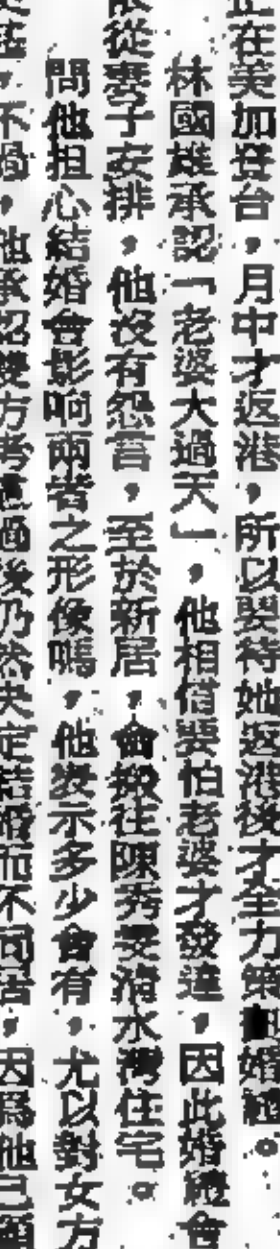 在美加登台，月中才返港，所以要待她返港後才全力策劃婚禮。
林國雄承認「老婆大過天」，他相信要怕老婆才發達，因此婚禮會
從妻子安排，他沒有怨言，至於新居，會搬往陳秀雯淺水灣住宅。
問他担心結婚會影响兩者之形像嗎，他表示多少會有，尤以對女方
不過，他承認雙方考慮過後仍然決定結婚而不同居，因爲他已